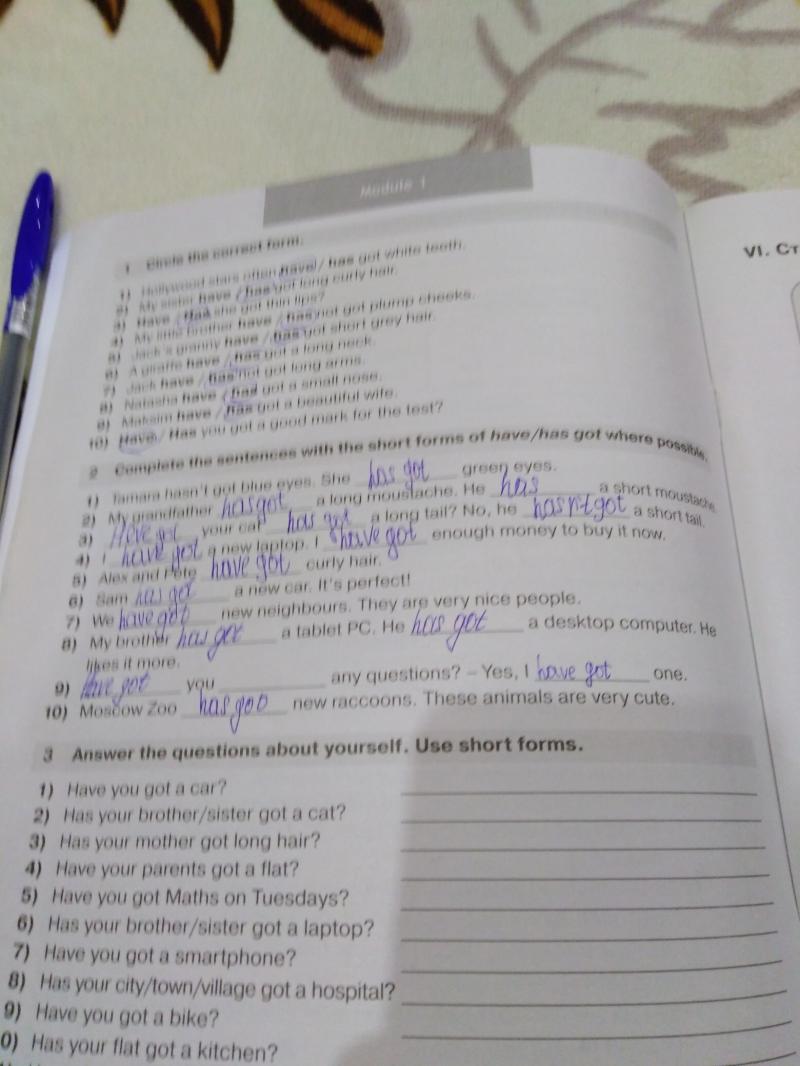 Module 1
1 Circle the correct form.
1) Hollywood stars often have / has got white teeth.
2) My sister have / has got long curly hair.
3) Have / Has she got thin lips?
4) My little brother have / has not got plump cheeks.
5) Jack's granny have / has got short grey hair.
6) A giraffe have / has got a long neck.
7) Jack have / has not got long arms.
8) Natasha have / has got a small nose.
9) Maksim have / has got a beautiful wife.
10) Have / Has you got a good mark for the test?
2 Complete the sentences with the short forms of have/has got where possible.
1) Tamara hasn't got blue eyes. She has got green eyes.
2) My grandfather has got a long moustache. He has a short moustache.
3) Have got your cat has got a long tail? No, he hasn't got a short tail.
4) I have got a new laptop. I have got enough money to buy it now.
5) Alex and Pete have got curly hair.
6) Sam has got a new car. It's perfect!
7) We have got new neighbours. They are very nice people.
8) My brother has got a tablet PC. He has got a desktop computer. He
likes it more.
9) Have got you any questions? – Yes, I have got one.
10) Moscow Zoo has got new raccoons. These animals are very cute.
3 Answer the questions about yourself. Use short forms.
1) Have you got a car?
2) Has your brother/sister got a cat?
3) Has your mother got long hair?
4) Have your parents got a flat?
5) Have you got Maths on Tuesdays?
6) Has your brother/sister got a laptop?
7) Have you got a smartphone?
8) Has your city/town/village got a hospital?
9) Have you got a bike?
0) Has your flat got a kitchen?
VI. Ст